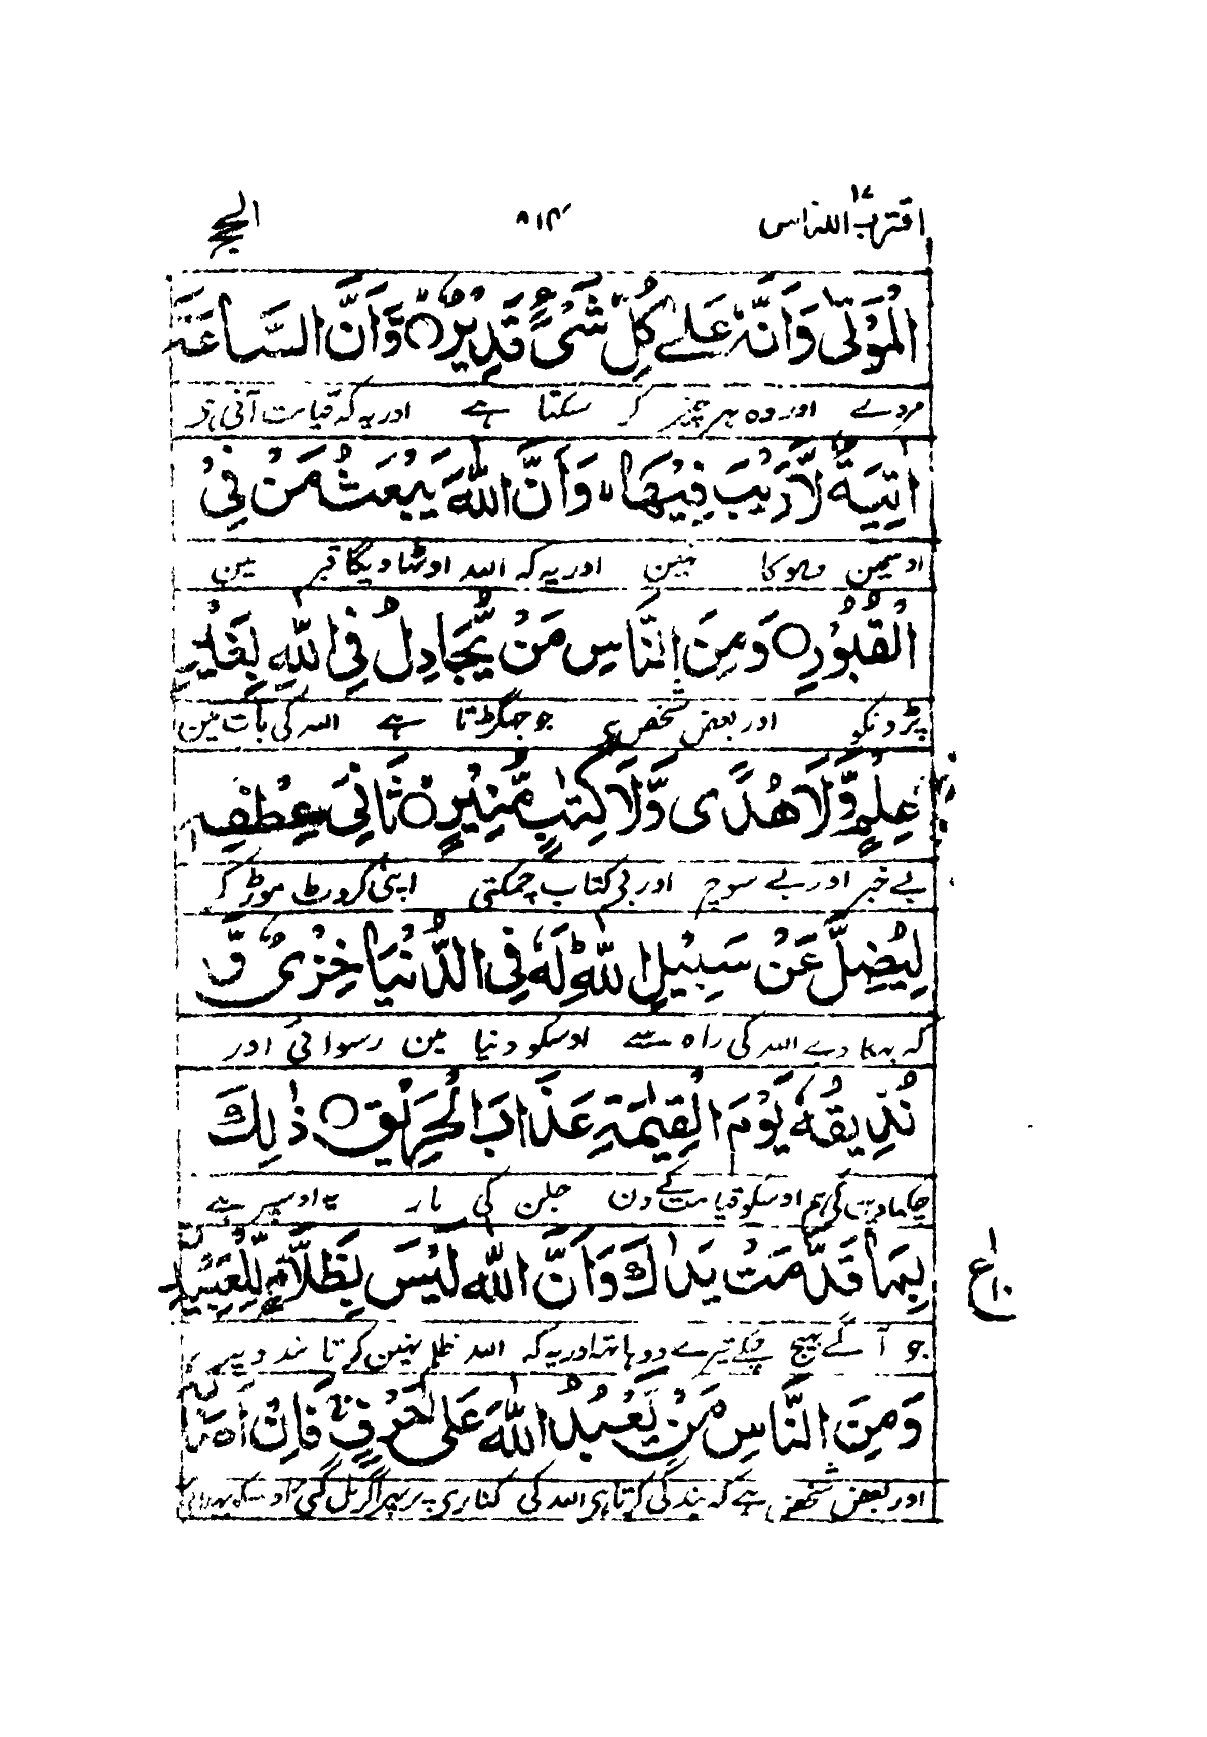 اقترب للناس ۱۷
۸۱۴
الحج
الْمَوْتٰى وَاَنَّهٗ عَلٰے كُلِّ شَىْءٍ قَدِيْرٌ ۙ وَّاَنَّ السَّاعَةَ
مردے اور وہ ہر چیز کر سکتا ہے اور یہ کہ قیامت آنی ہے
اٰتِيَةٌ لَّا رَيْبَ فِيْهَا ۙ وَاَنَّ اللّٰهَ يَبْعَثُ مَنْ فِى
اوسمین دھوکا نہین اور یہ کہ اللہ اوٹھا دیگا قبر مین
الْقُبُوْرِ ۝ وَمِنَ النَّاسِ مَنْ يُّجَادِلُ فِى اللّٰهِ بِغَيْرِ
پڑونکو اور بعض شخص ہے جو جہگڑتا ہے اللہ کی بات مین
عِلْمٍ وَّلَا هُدًى وَّلَا كِتٰبٍ مُّنِيْرٍ ۙ ثَانِىَ عِطْفِهٖ
بے خبر اور بے سوجہ اور بی کتاب چمکتی اپنی کروٹ موڑ کر
لِيُضِلَّ عَنْ سَبِيْلِ اللّٰهِ ۭ لَهٗ فِى الدُّنْيَا خِزْىٌ وَّ
کہ بہکا دے اللہ کی راہ سے اوسکو دنیا مین رسوائی اور
نُذِيْقُهٗ يَوْمَ الْقِيٰمَةِ عَذَابَ الْحَرِيْقِ ۝ ذٰلِكَ
چکھا دینگی ہم اوسکو قیامت کے دن جلن کی مار یہ اوسپر ہے
بِمَا قَدَّمَتْ يَدٰكَ وَاَنَّ اللّٰهَ لَيْسَ بِظَلَّامٍ لِّلْعَبِيْدِ
جو آگے بھیج چکے تیرے دو ہاتھ اور یہ کہ اللہ ظلم نہین کرتا بندوں پر
ع ۱۰
وَمِنَ النَّاسِ مَنْ يَّعْبُدُ اللّٰهَ عَلٰى حَرْفٍ ۚ فَاِنْ اَصَابَهٗ
اور بعض شخص ہے کہ بندگی کرتا ہی اللہ کی کناری پر پہر اگر مل گئی اوسکو بہلائی